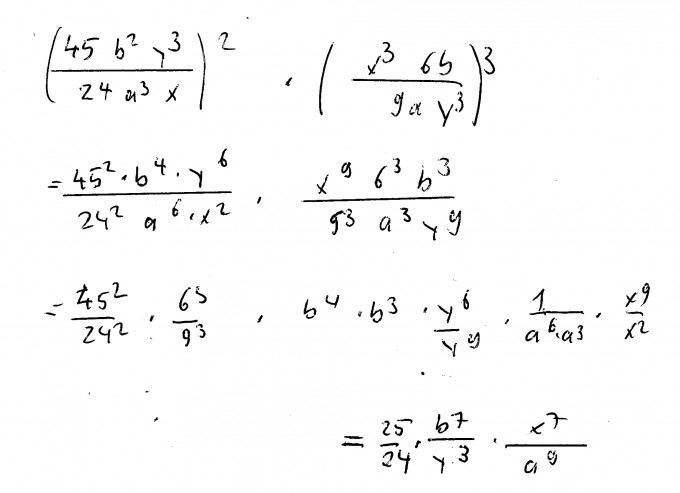 (45 b² y³ / 24 a³ x)² · (x³ 6b / 9a y³)³
= 45² · b⁴ · y⁶ / 24² a⁶ · x² · x⁹ 6³ b³ / 9³ a³ y⁹
= 45² / 24² · 6³ / 9³ · b⁴ · b³ · y⁶ / y⁹ · 1 / a⁶ · a³ · x⁹ / x²
= 25 / 24 · b⁷ / y³ · x⁷ / a⁹